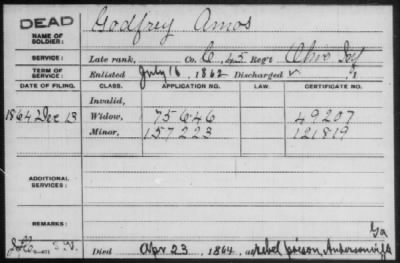 DEAD Godfrey Amos
NAME OF
SOLDIER:
SERVICE: Late rank, Co. C, 45 Reg't Ohio Inf
TERM OF
SERVICE: Enlisted July 16, 1862 Discharged , 1
DATE OF FILING. CLASS. APPLICATION NO. LAW. CERTIFICATE NO.
Invalid,
1864 Dec 13 Widow, 75646 49207
Minor, 157223 121819
ADDITIONAL
SERVICES:
REMARKS: Ga
Died Apr 23, 1864, at rebel prison, Andersonville